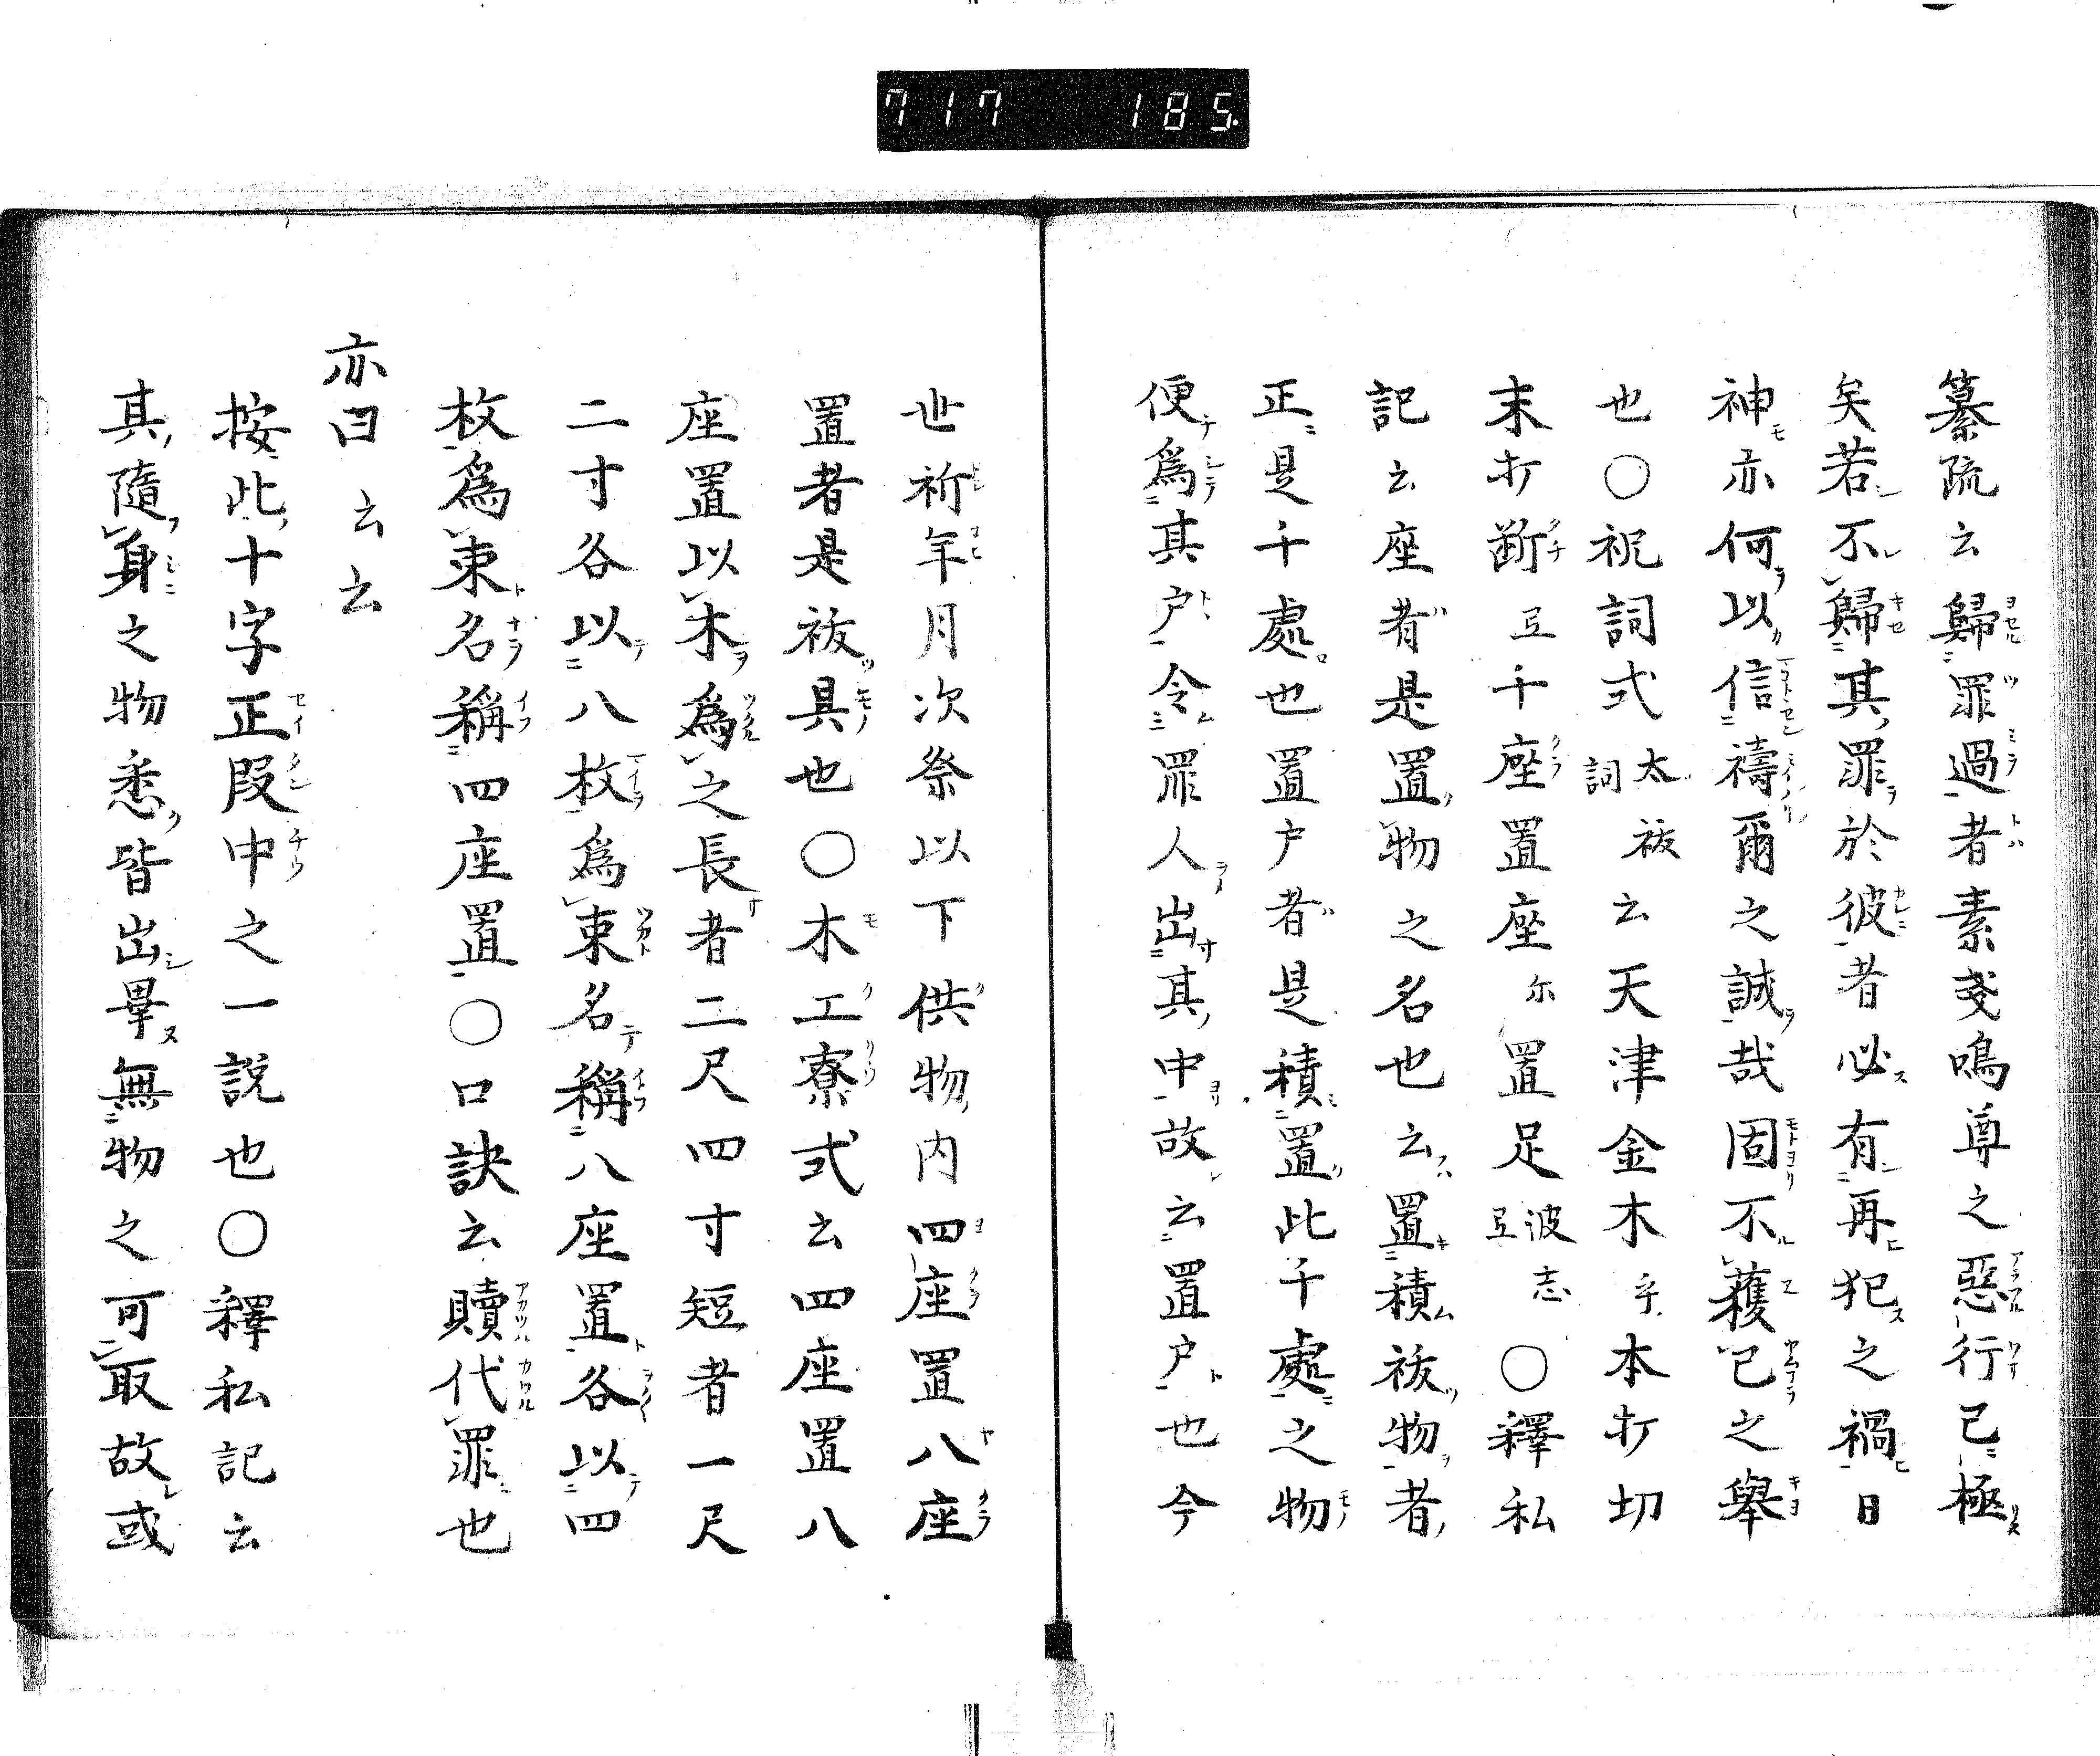 717 185.
纂疏云歸罪過者素戔嗚尊之惡行已極
矣若不歸其罪於彼者必有再犯之禍日
神亦何以信禱爾之誠哉固不獲已之舉
也〇祝詞式太祓詞云天津金木乎本打切
末打断弖千座置座尓置足波志弖〇釋私
記云座者是置物之名也云置積祓物者
正是千處也置户者是積置此千處之物
便爲其户令罪人出其中故云置户也今
世祈年月次祭以下供物内四座置八座
置者是祓具也〇木工寮式云四座置八
座置以木爲之長者二尺四寸短者一尺
二寸各以八枚爲束名稱八座置各以四
枚爲束名稱四座置〇口訣云贖代罪也
亦曰云云
按此十字正段中之一説也〇釋私記云
其隨身之物悉皆出畢無物之可取故或